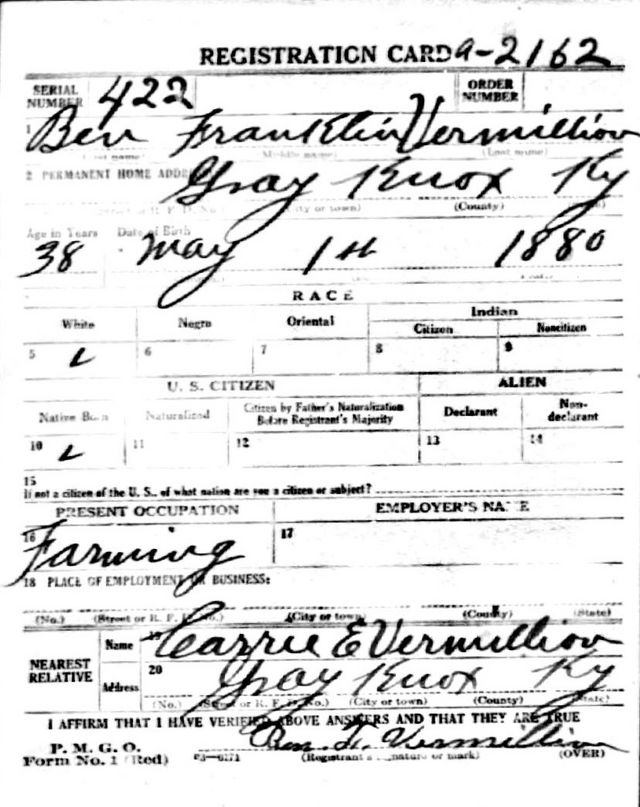 REGISTRATION CARD 9-2162
SERIAL NUMBER 422 ORDER NUMBER
1 Ben Franklin Vermillion
(First name) (Middle name) (Last name)
2 PERMANENT HOME ADDRESS Gray Knox Ky
(No.) (Street or R. F. D. No.) (City or town) (County) (State)
Age in Years Date of Birth
38 May 1st 1880
RACE
White Negro Oriental Indian
Citizen Noncitizen
5 6 7 8 9
U. S. CITIZEN ALIEN
Native Born Naturalized Citizen by Father's Naturalization Before Registrant's Majority Declarant Non-declarant
10 11 12 13 14
15
If not a citizen of the U. S., of what nation are you a citizen or subject?
PRESENT OCCUPATION EMPLOYER'S NAME
16 Farming 17
18 PLACE OF EMPLOYMENT OR BUSINESS:
(No.) (Street or R. F. D. No.) (City or town) (County) (State)
NEAREST RELATIVE Name 19 Carrie E Vermillion
Address 20 Gray Knox Ky
(No.) (Street or R. F. D. No.) (City or town) (County) (State)
I AFFIRM THAT I HAVE VERIFIED ABOVE ANSWERS AND THAT THEY ARE TRUE
P. M. G. O.
Form No. 1 (Red) 03-6171 Ben F. Vermillion
(Registrant's signature or mark) (OVER)